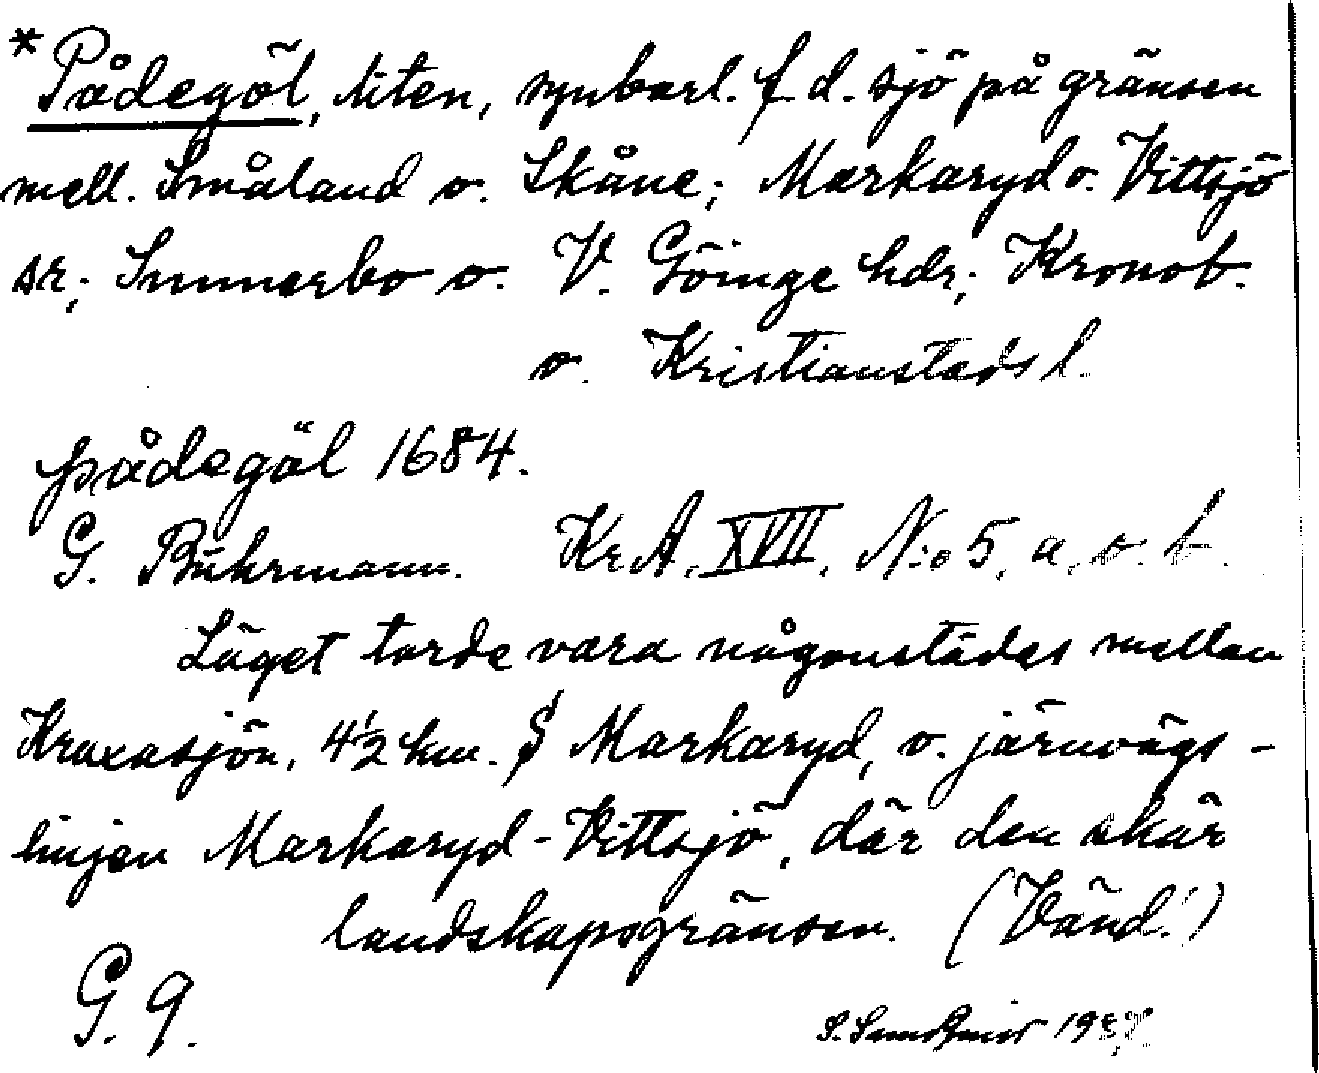 *Pådegöl, liten, synbarl. f. d. sjö på gränsen
mell. Småland o. Skåne; Markaryd o. Vittsjö
sr; Sunnerbo o. V. Göinge hdr; Kronob.
o. Kristianstads l.
pådegöl 1684.
G. Buhrmann. Kr.A. XVII. N:o 5, a. o. b.
Läget torde vara någonstädes mellan
Kraxasjön, 4 1/2 km. S Markaryd, o. järnvägs-
linjen Markaryd-Vittsjö, där den skär
landskapsgränsen. (Vänd!)
G. 9.
S.